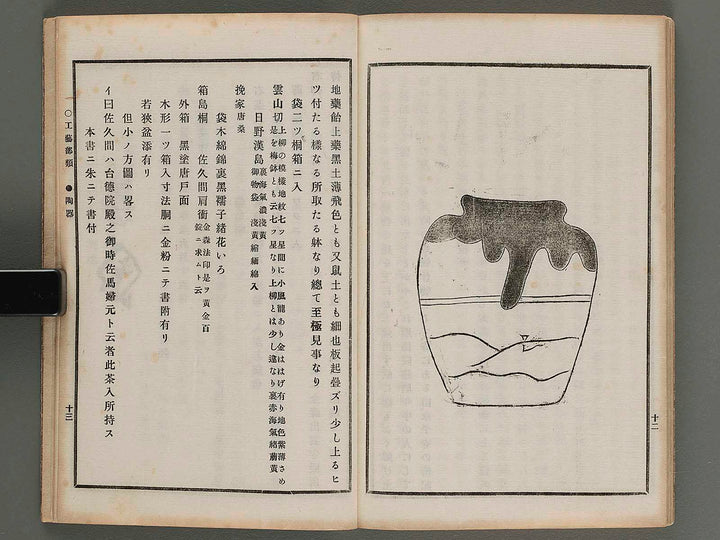 十二
地藥飴上藥黑土薄飛色とも又鼠土とも細也板起疊ズリ少し上るヒ
ツ付たる樣なる所取たる躰なり總て至極見事なり
袋二ツ桐箱ニ入
雲山切
上柳の模樣地紋七ツ星間に小風龍あり金ははげ有り地色紫薄さめ
是を梅鉢とも云七ツ星なり上柳とは少し違なり裏赤海氣緖萠黃
日野漢島
裏海氣濃淺黃
御物袋淺黃縮緬綿入
挽家唐桑
袋木綿錦裏黑襦子緖花いろ
箱島桐 佐久間肩衝
金森法印是ヲ黃金百
錠ニ求ムト云
外箱 黑塗唐戸面
木形一ツ箱入寸法胴ニ金粉ニテ書附有リ
若狹盆添有リ
但小ノ方圖ハ畧ス
イ曰佐久間ハ台德院殿之御時佐馬婦元ト云者此茶入所持ス
本書ニ朱ニテ書付
○工藝部類 ●陶器
十三